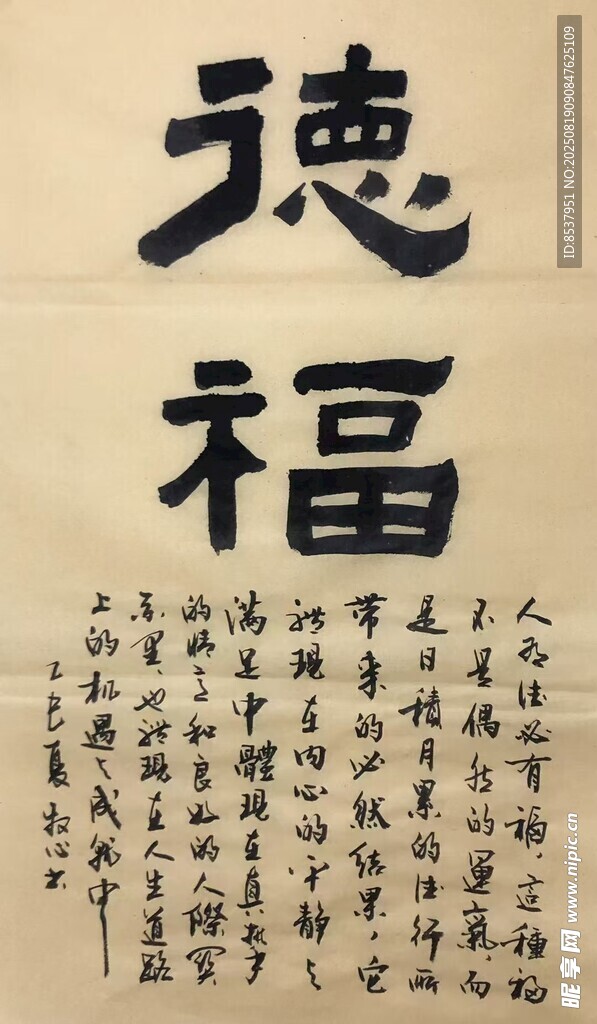 德
福
人有德必有福，這種福
不是偶然的運氣，而
是日積月累的德行所
帶来的必然结果，它
體現在内心的平静与
满足中體現在真挚
的情意和良好的人際関
系里，也體現在人生道路
上的机遇与成就中
乙巳夏 牧心书
ID:8537951 NO:20250819090847625109
昵享网 www.nipic.cn